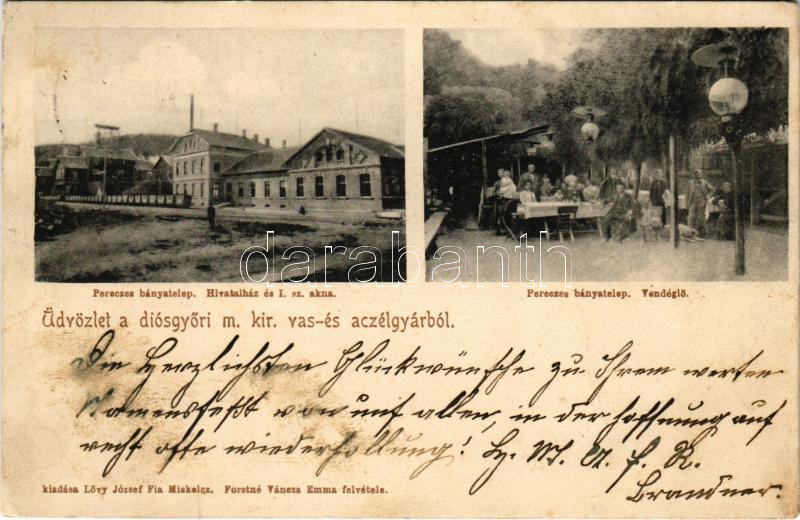 Pereczes bányatelep. Hivatalház és I. sz. akna.
Pereczes bányatelep. Vendéglő.
Üdvözlet a diósgyőri m. kir. vas-és aczélgyárból.
Die Herzlichsten Glückwünsche zu Ihrem werten
Namensfeßt von unß allen, in der hoffnung auf
recht ofte wiederhollung!
Brandner.
kiadása Lövy József Fia Miskolcz. Forstné Váncza Emma felvétele.
darabanth